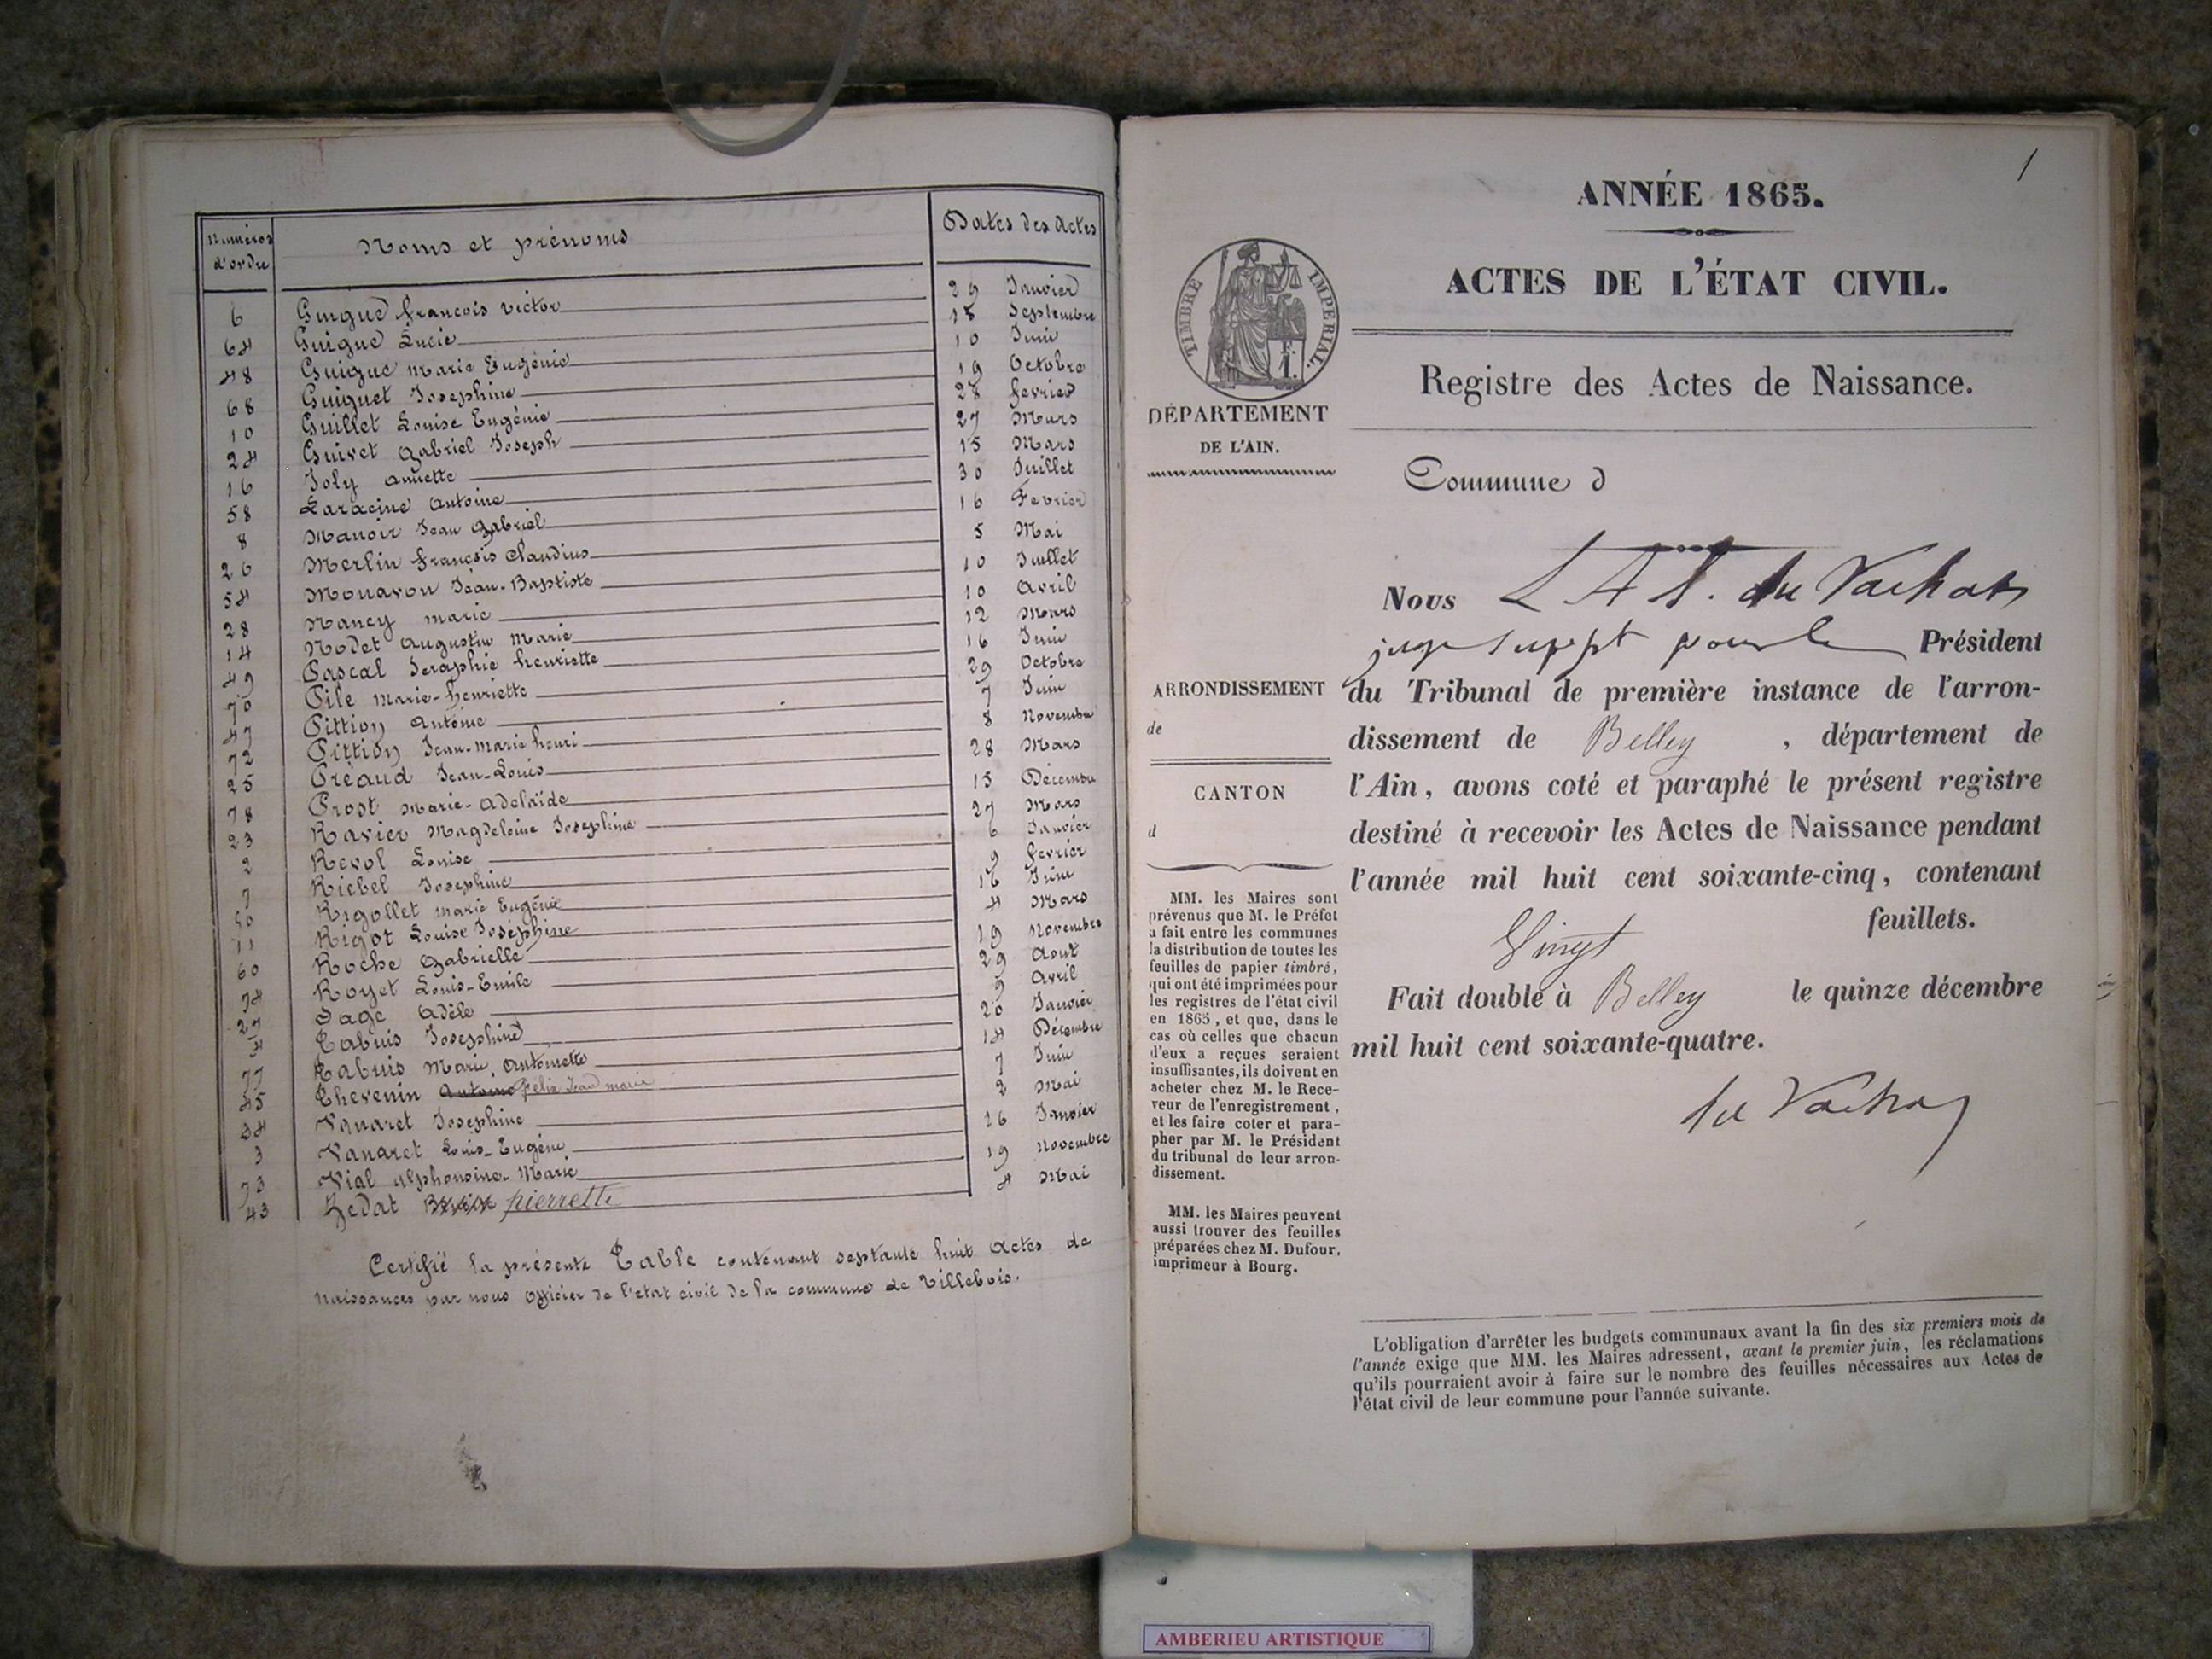 Numéros d'ordre
Noms et prénoms
Dates des Actes
6 Guigue françois victor 29 Janvier
64 Guigue Lucie 18 Septembre
48 Guigue Marie Eugénie 10 Juin
68 Guiguet Josephine 19 Octobre
10 Guillet Louise Eugénie 28 fevrier
24 Guivet Gabriel Joseph 27 Mars
16 Joly annette 15 Mars
58 Laracine Antoine 30 Juillet
8 Manoir Jean Gabriel 16 Fevrier
26 Merlin françois Claudius 5 Mai
54 Monavon Jean-Baptiste 10 Juillet
28 Nancy marie 10 Avril
14 Nodet Augustin Marie 12 Mars
49 Pascal Seraphie henriette 16 Juin
70 Pile Marie-henriette 29 Octobre
47 Pittion Antoine 7 Juin
72 Pittion Jean-Marie henri 8 Novembre
25 Préaud Jean-Louis 28 Mars
78 Prost Marie-Adelaïde 15 Décembre
23 Ravier Magdeleine Josephine 27 Mars
2 Revol Louise 6 Janvier
7 Riebel Josephine 9 fevrier
50 Rigollet marie Eugénie 16 Juin
11 Rigot Louise Joséphine 4 Mars
60 Roche Gabrielle 19 Novembre
74 Royet Louis-Emile 29 Aout
27 Sage Adèle 9 Avril
4 Tabuis Josephine 20 Janvier
77 Tabuis Marie Antoinette 14 Décembre
45 Thevenin Antoine félix Jean marie 7 Juin
34 Vanaret Josephine 2 Mai
3 Vanaret Louis-Eugène 16 Janvier
73 Vial alphonsine-Marie 19 Novembre
43 Zedat pierrette 4 Mai
Certifié la présente Table contenant septante huit actes de
naissances par nous officier de l'état civil de la commune de Villebois.
1
ANNÉE 1865.
ACTES DE L'ÉTAT CIVIL.
TIMBRE IMPÉRIAL.
Registre des Actes de Naissance.
DÉPARTEMENT
DE L'AIN.
Commune d
Nous L A S. du Vachat
juge suppt pour le Président
ARRONDISSEMENT
de
CANTON
d
du Tribunal de première instance de l'arron-
dissement de Belley, département de
l'Ain, avons coté et paraphé le présent registre
destiné à recevoir les Actes de Naissance pendant
l'année mil huit cent soixante-cinq, contenant
Vingt feuillets.
Fait double à Belley le quinze décembre
mil huit cent soixante-quatre.
du Vachat
MM. les Maires sont
prévenus que M. le Préfet
a fait entre les communes
la distribution de toutes les
feuilles de papier timbré,
qui ont été imprimées pour
les registres de l'état civil
en 1865, et que, dans le
cas où celles que chacun
d'eux a reçues seraient
insuffisantes, ils doivent en
acheter chez M. le Rece-
veur de l'enregistrement,
et les faire coter et para-
pher par M. le Président
du tribunal de leur arron-
dissement.
MM. les Maires peuvent
aussi trouver des feuilles
préparées chez M. Dufour,
imprimeur à Bourg.
L'obligation d'arrêter les budgets communaux avant la fin des six premiers mois de
l'année exige que MM. les Maires adressent, avant le premier juin, les réclamations
qu'ils pourraient avoir à faire sur le nombre des feuilles nécessaires aux Actes de
l'état civil de leur commune pour l'année suivante.
AMBERIEU ARTISTIQUE